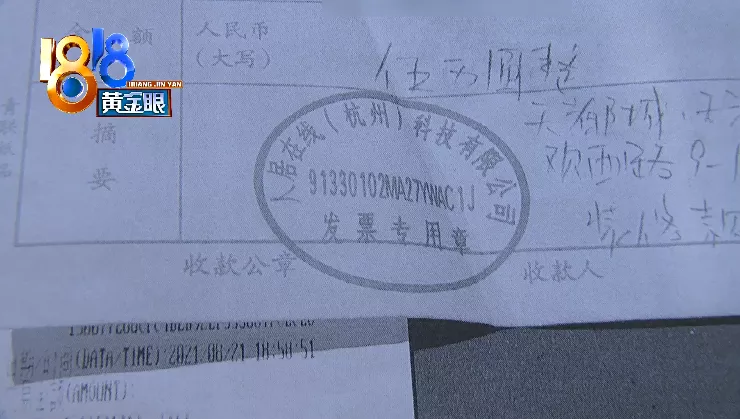 1818
HUANG JIN YAN
黄金眼
金 额
人民币
(大写)
伍万圆整
摘
要
天都城
欢西路9-1
装修款
人居在线(杭州)科技有限公司
91330102MA27YWAC1J
发票专用章
收款公章
收款人
(DATA/TIME):2021/08/21 18:58:51
(AMOUNT):